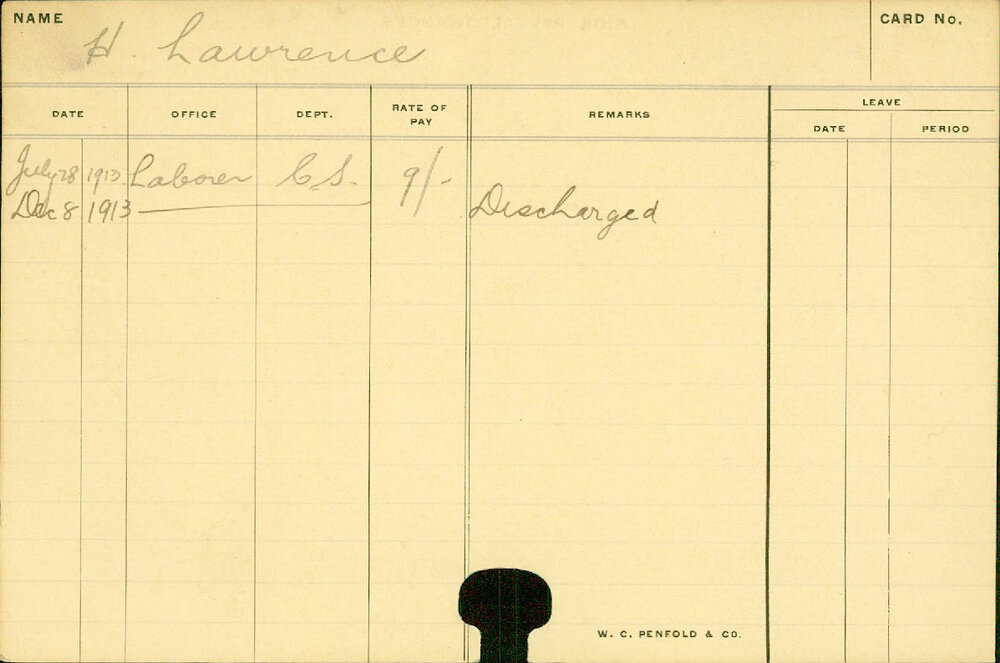 NAME
H. Lawrence
CARD No.
DATE OFFICE DEPT. RATE OF PAY REMARKS LEAVE
DATE PERIOD
July 28 1913 Laborer C.S. 9/-
Dec 8 1913 Discharged
W. C. PENFOLD & CO.